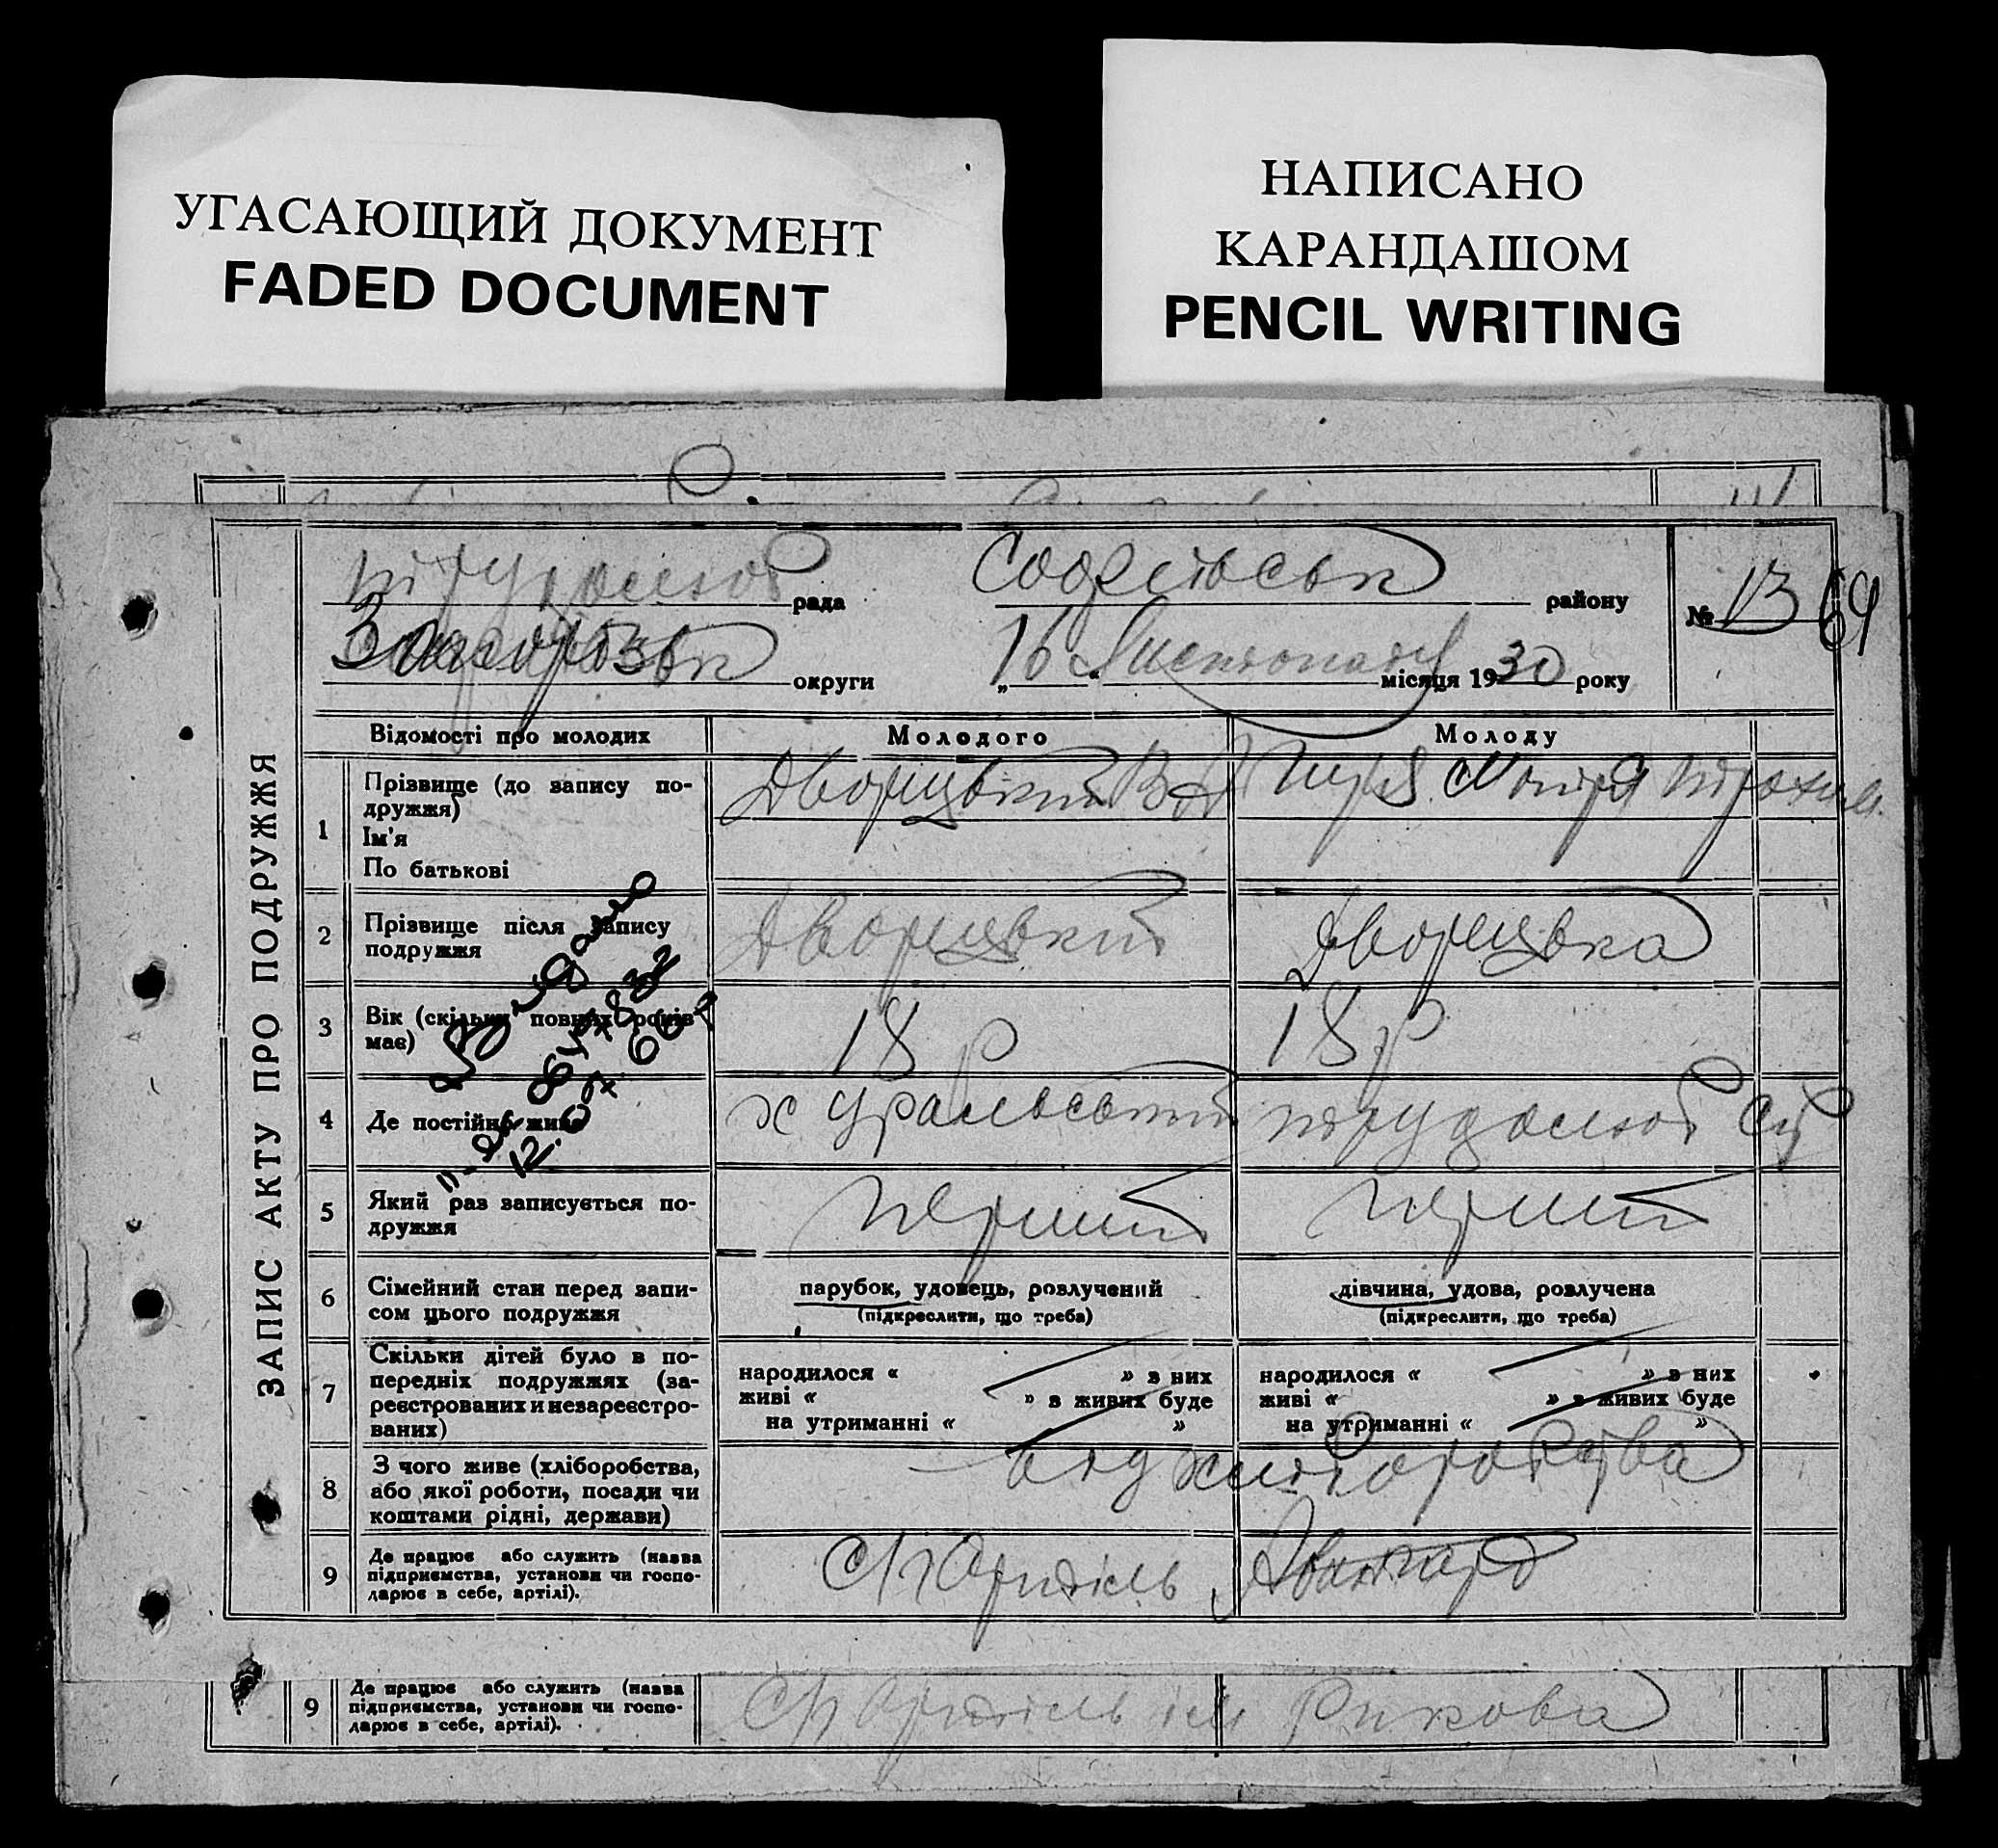 УГАСАЮЩИЙ ДОКУМЕНТ
FADED DOCUMENT
НАПИСАНО
КАРАНДАШОМ
PENCIL WRITING
ЗАПИС АКТУ ПРО ПОДРУЖЖЯ
рада Софіївськ району
№ 13 69
Запорізьк округи „16" Листопада місяця 1930 року
Відомості про молодих Молодого Молоду
1 Прізвище (до запису по-
дружжя)
Ім'я
По батькові
Дворецький
Марія
2 Прізвище після запису
подружжя
Дворецький Дворецька
3 Вік (скільки повних років
має)
18 р 18 р
4 Де постійно живе
х Уральський
5 Який раз записується по-
дружжя
перший перший
6 Сімейний стан перед запи-
сом цього подружжя
парубок, удовець, розлучений
(підкреслити, що треба)
дівчина, удова, розлучена
(підкреслити, що треба)
7 Скільки дітей було в по-
передніх подружжях (за-
реєстрованих и незареєстро-
ваних)
народилося « » з них
живі « » в живих буде
на утриманні « »
народилося « » з них
живі « » в живих буде
на утриманні « »
8 З чого живе (хліборобства,
або якої роботи, посади чи
коштами рідні, держави)
від хліборобства
9 Де працює або служить (назва
підприємства, установи чи госпо-
дарює в себе, артілі).
Артіль Авангард
Видано
9 Де працює або служить (назва
підприємства, установи чи госпо-
дарює в себе, артілі).
Артіль ім Рикова